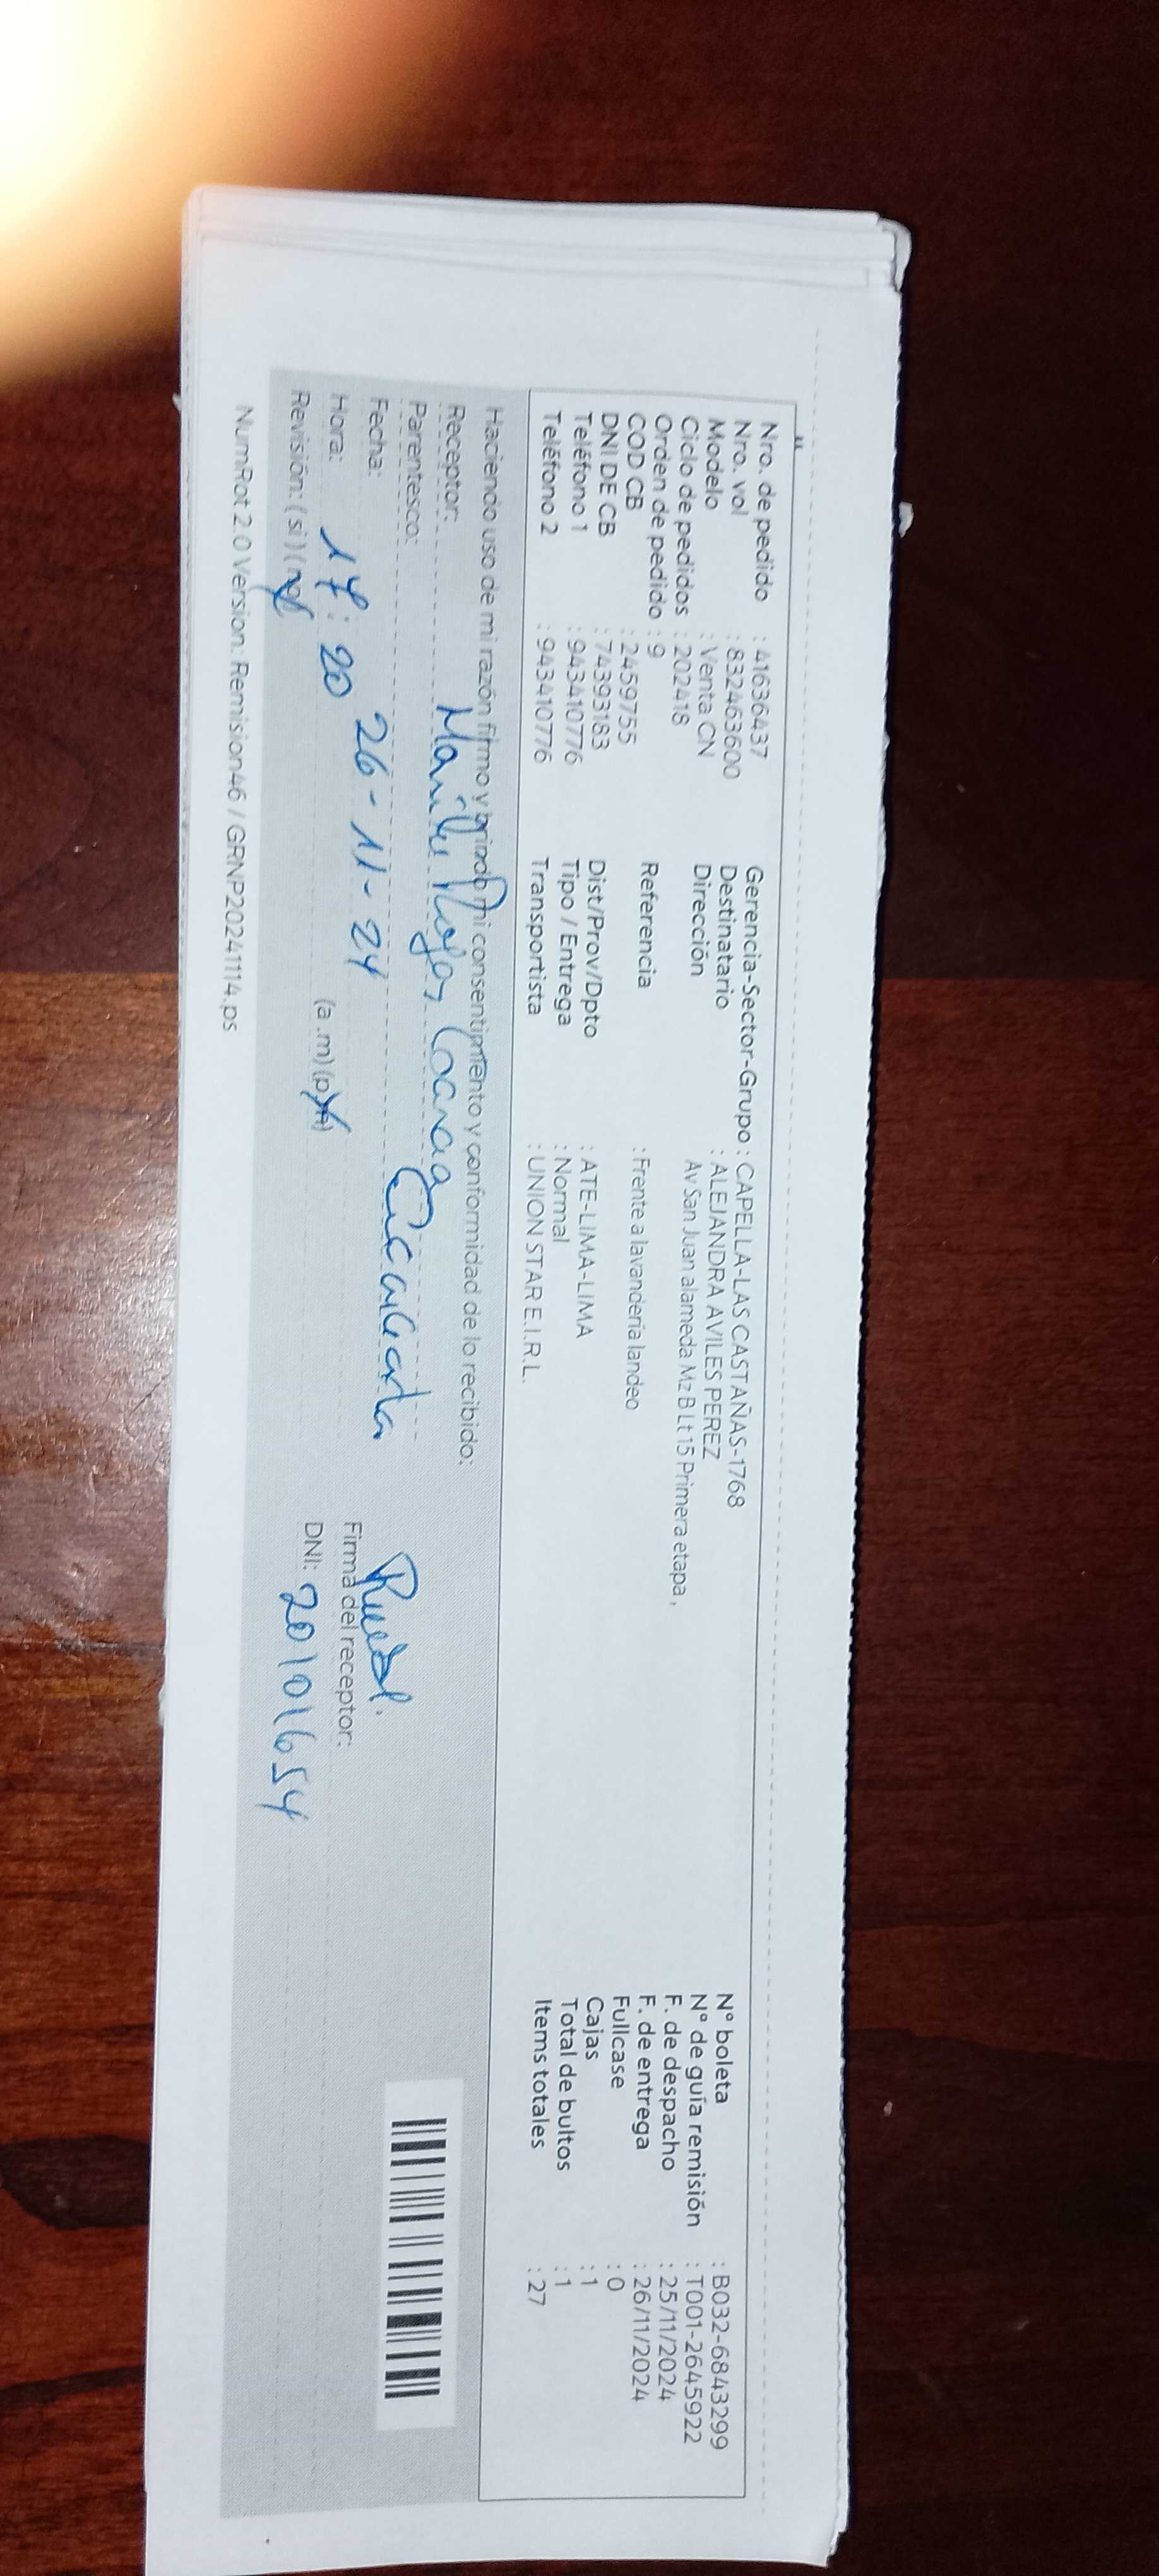 Nro. de pedido : 41636437
Nro. vol : 832463600
Modelo : Venta CN
Ciclo de pedidos : 202418
Orden de pedido : 9
COD CB : 2459755
DNI DE CB : 74393183
Teléfono 1 : 943410776
Teléfono 2 : 943410776
Gerencia-Sector-Grupo : CAPELLA-LAS CASTAÑAS-1768
Destinatario : ALEJANDRA AVILES PEREZ
Dirección Av San Juan alameda Mz B Lt 15 Primera etapa,
Referencia : Frente a lavandería landeo
Dist/Prov/Dpto : ATE-LIMA-LIMA
Tipo / Entrega : Normal
Transportista : UNION STAR E.I.R.L.
N° boleta : B032-6843299
N° de guía remisión : T001-2645922
F. de despacho : 25/11/2024
F. de entrega : 26/11/2024
Fullcase : 0
Cajas : 1
Total de bultos : 1
Items totales : 27
Haciendo uso de mi razón firmo y brindo mi consentimiento y conformidad de lo recibido:
Receptor:
Parentesco:
Fecha: 26-11-24
Hora: 17:20 (a.m) (p.m)
Revisión: (si) (no)
Firma del receptor:
DNI: 20101654
NumRot 2.0 Version: Remision46 / GRNP20241114.ps